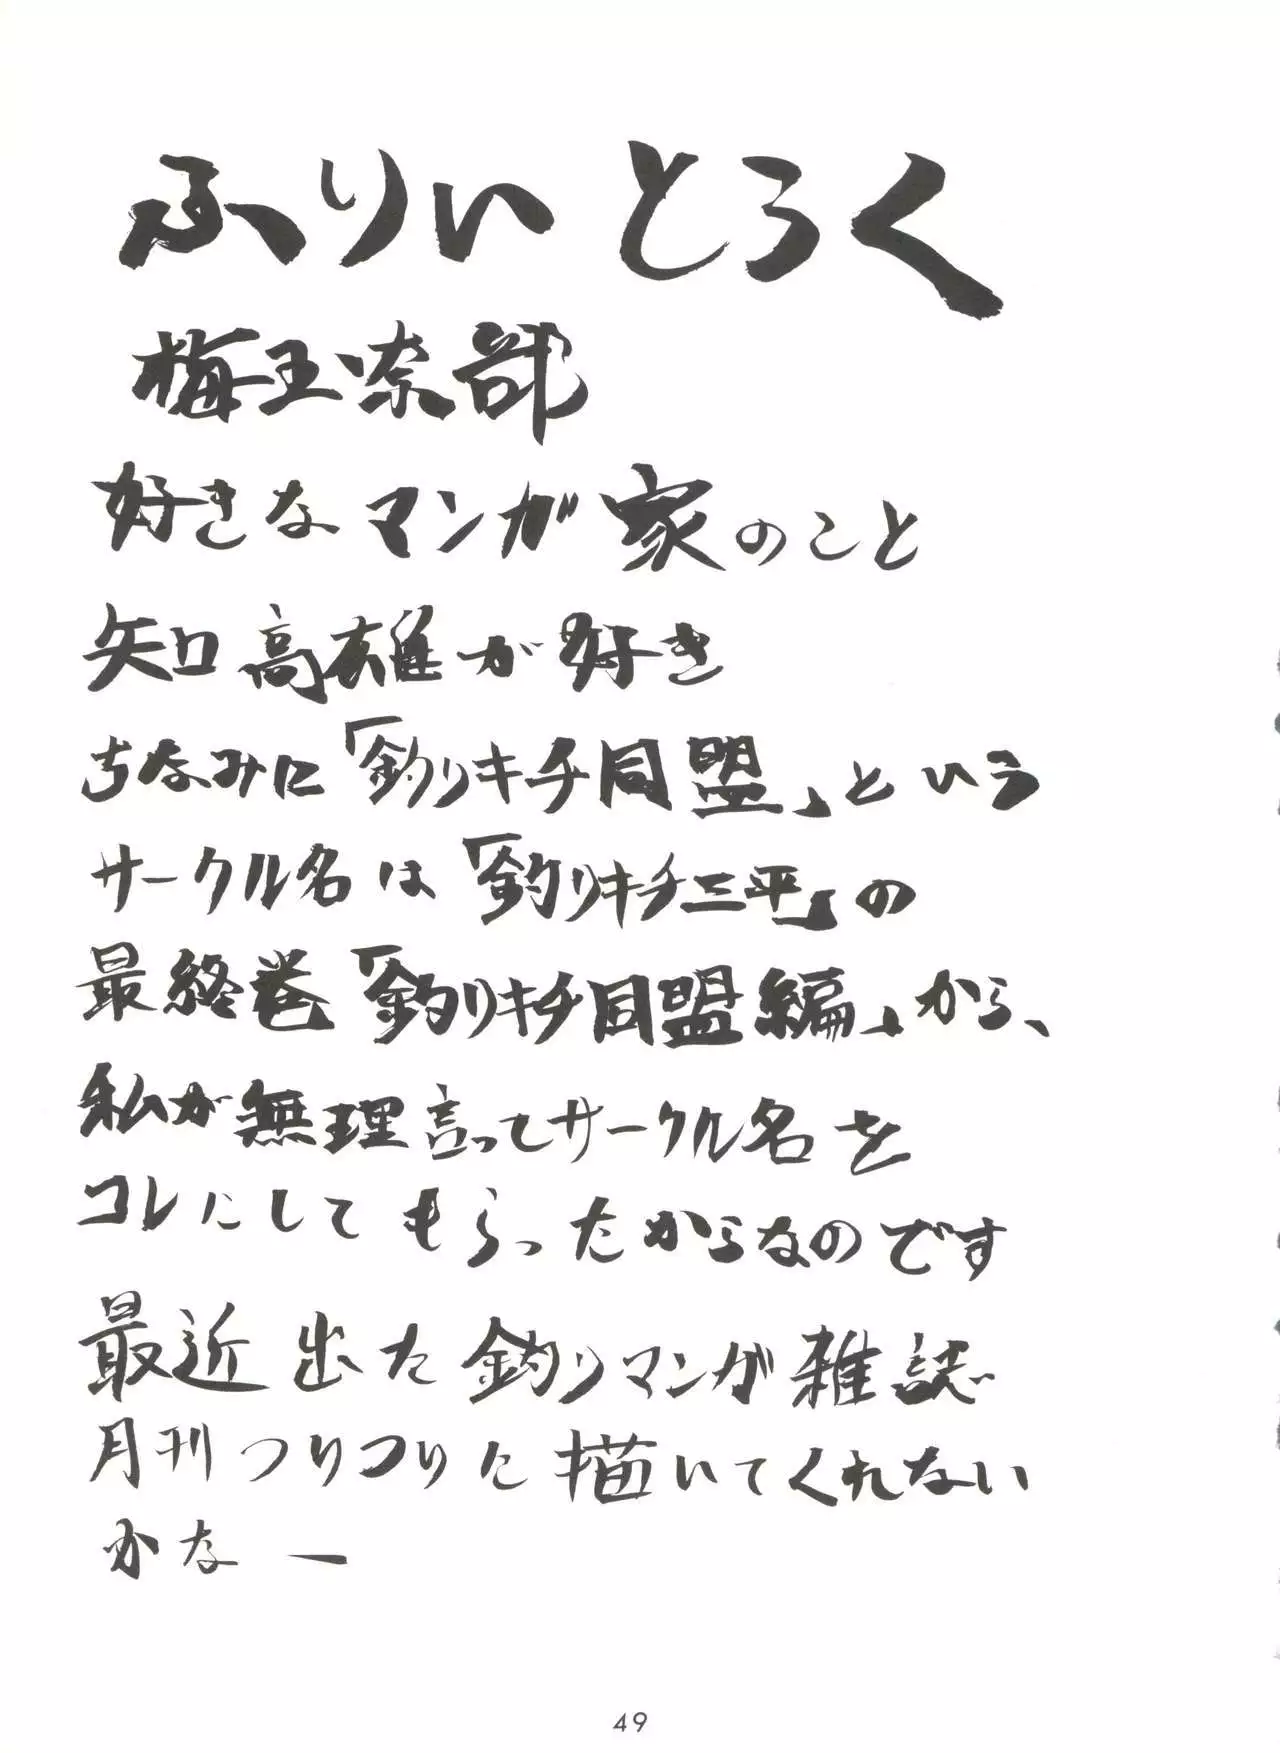 ふりいとろく
梅玉奈部
好きなマンガ家のこと
矢口高雄が好き
ちなみに「釣りキチ同盟」という
サークル名は「釣りキチ三平」の
最終巻「釣りキチ同盟編」から、
私が無理言ってサークル名を
コレにしてもらったからなのです
最近出た釣りマンガ雑誌
月刊つりつりに描いてくれない
かなー
49